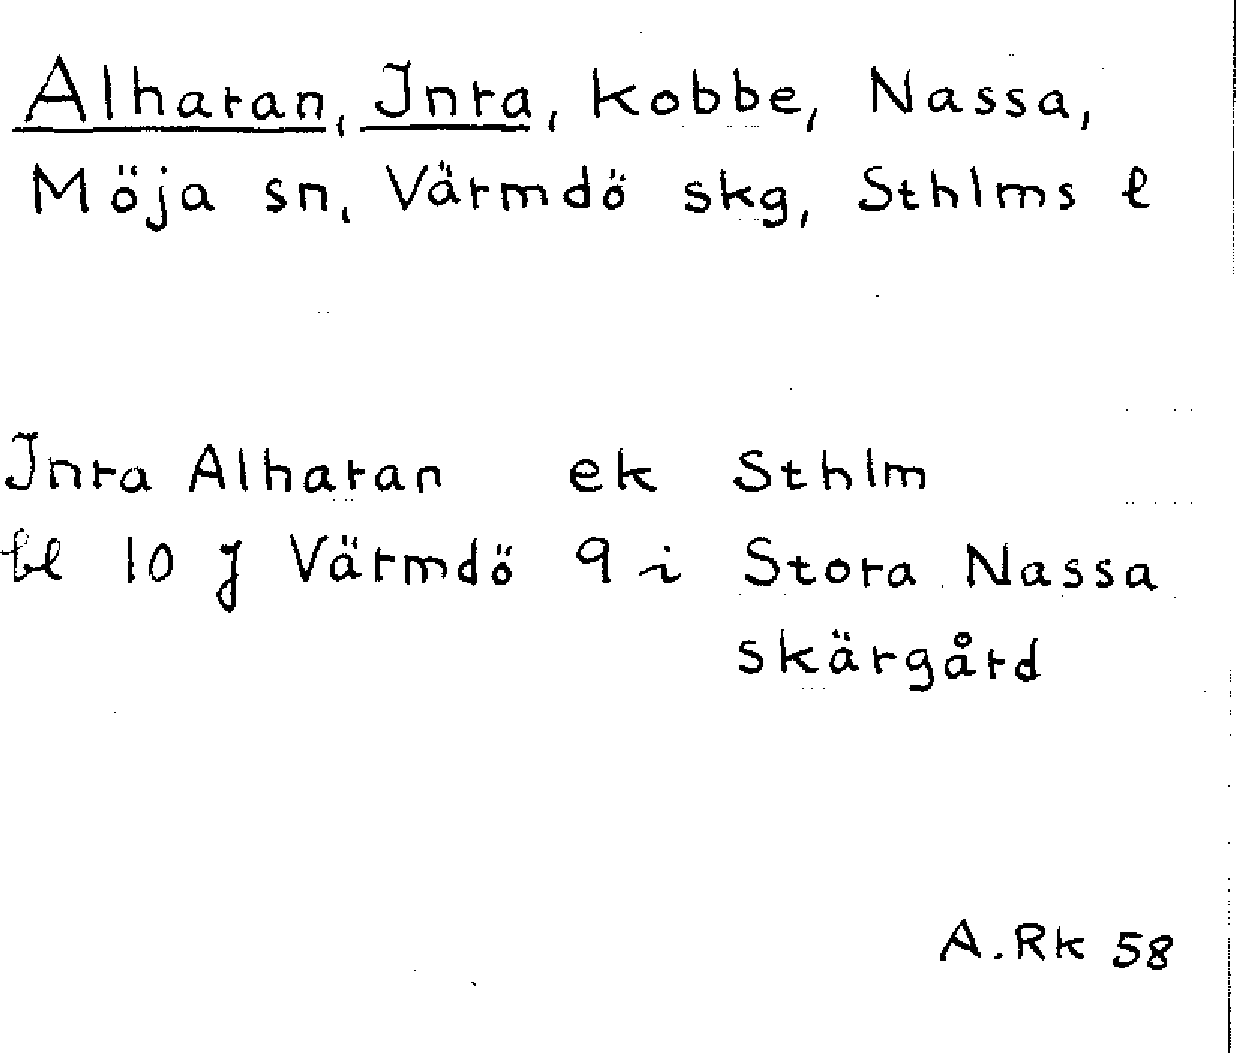 Alharan, Inra, kobbe, Nassa,
Möja sn, Värmdö skg, Sthlms l
Inra Alharan ek Sthlm
bl 10 J Värmdö 9 i Stora Nassa
skärgård
A.Rk 58